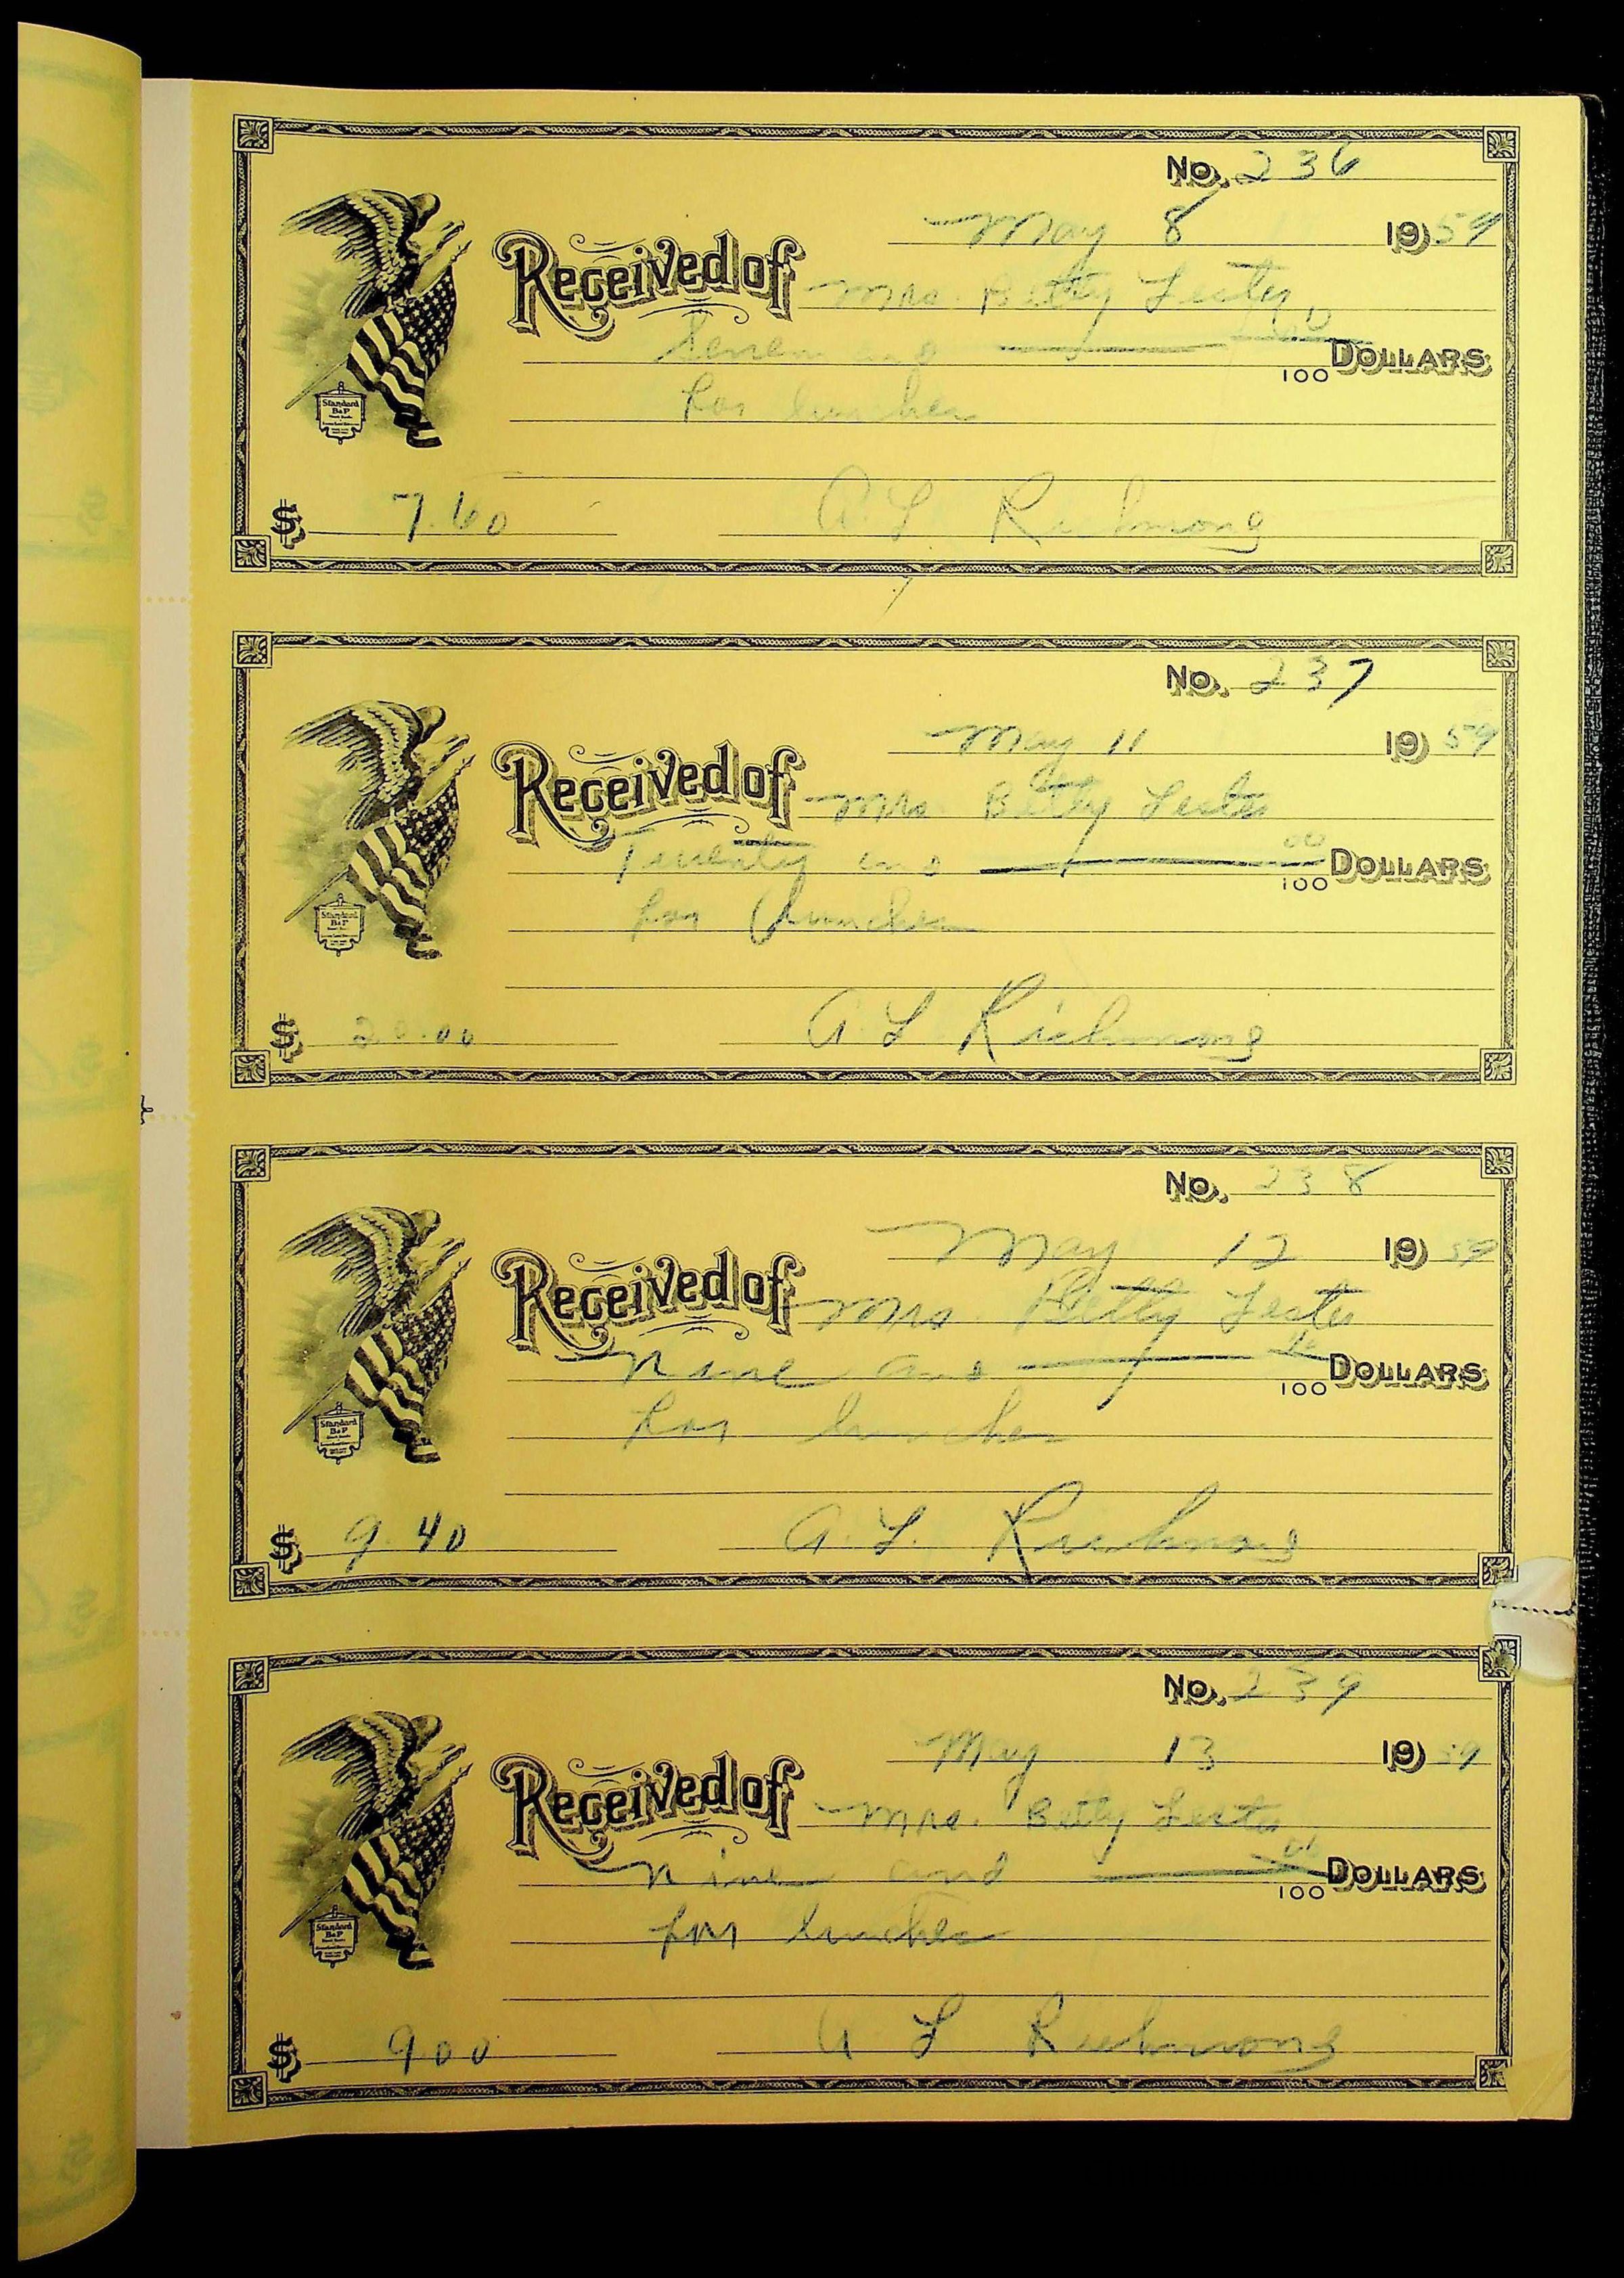 No. 236
May 8 1959
Received of Mrs. Betty Lester
Seven and 60/100 Dollars
for lunches
$ 7.60 A L Richmond
Standard
B&P
No. 237
May 11 1959
Received of Mrs. Betty Lester
Twenty and 00/100 Dollars
for lunches
$ 20.00 A L Richmond
Standard
B&P
No. 238
May 12 1959
Received of Mrs. Betty Lester
Nine and 40/100 Dollars
for lunches
$ 9.40 A. L. Richmond
Standard
B&P
No. 239
May 13 1959
Received of Mrs. Betty Lester
Nine and 00/100 Dollars
for lunches
$ 9.00 A L Richmond
Standard
B&P